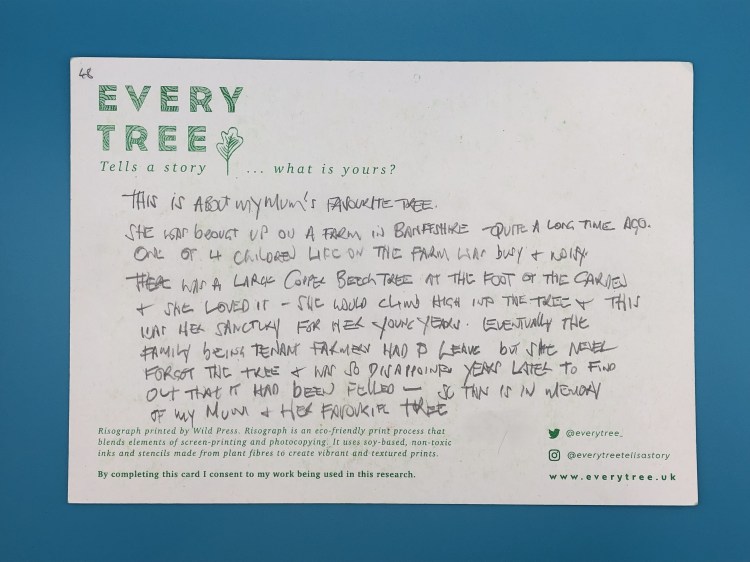 48
EVERY
TREE
Tells a story ... what is yours?
THIS IS ABOUT MY MUM'S FAVOURITE TREE.
SHE WAS BROUGT UP ON A FARM IN BANFFSHIRE QUITE A LONG TIME AGO.
ONE OF 4 CHILDREN LIFE ON THE FARM WAS BUSY & NOISY.
THERE WAS A LARGE COPPER BEECH TREE AT THE FOOT OF THE GARDEN
& SHE LOVED IT - SHE WOULD CLIMB HIGH INTO THE TREE & THIS
WAS HER SANCTUARY FOR HER YOUNG YEARS. EVENTUALLY THE
FAMILY BEING TENANT FARMERS HAD TO LEAVE BUT SHE NEVER
FORGOT THE TREE & WAS SO DISAPPOINTED YEARS LATER TO FIND
OUT THAT IT HAD BEEN FELLED - SO THIS IS IN MEMORY
OF MY MUM & HER FAVOURITE TREE
Risograph printed by Wild Press. Risograph is an eco-friendly print process that
blends elements of screen-printing and photocopying. It uses soy-based, non-toxic
inks and stencils made from plant fibres to create vibrant and textured prints.
By completing this card I consent to my work being used in this research.
@everytree_
@everytreetellsastory
www.everytree.uk